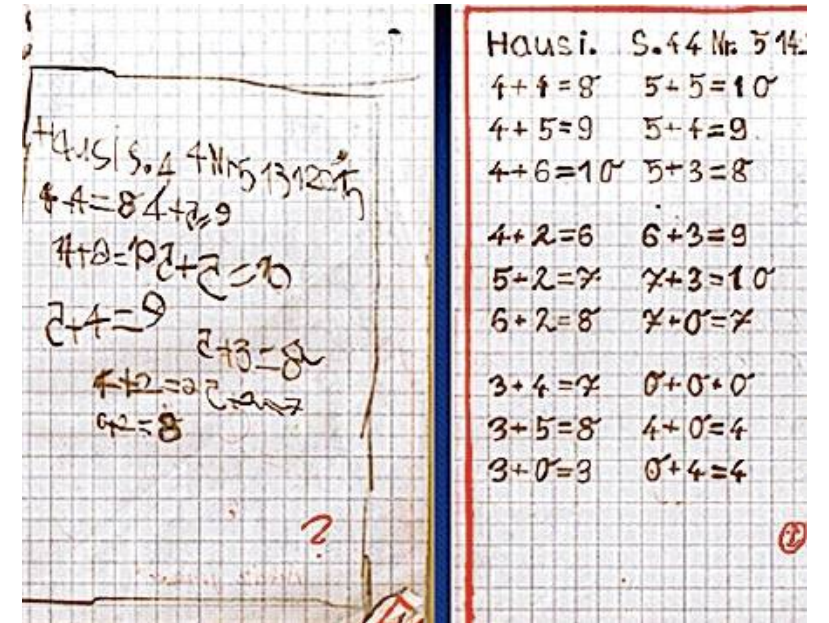 Hausi S.4 4 Nr5 13
4+4=8 4+5=9
5+5=10
5+4=9
5+3=8
4+2=
+2=8
?
Hausi. S.44 Nr. 5 14.
4+4=8 5+5=10
4+5=9 5+4=9
4+6=10 5+3=8
4+2=6 6+3=9
5+2=7 7+3=10
6+2=8 7+0=7
3+4=7 0+0+0
3+5=8 4+0=4
3+0=3 0+4=4